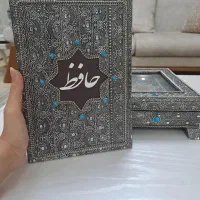 حافظ